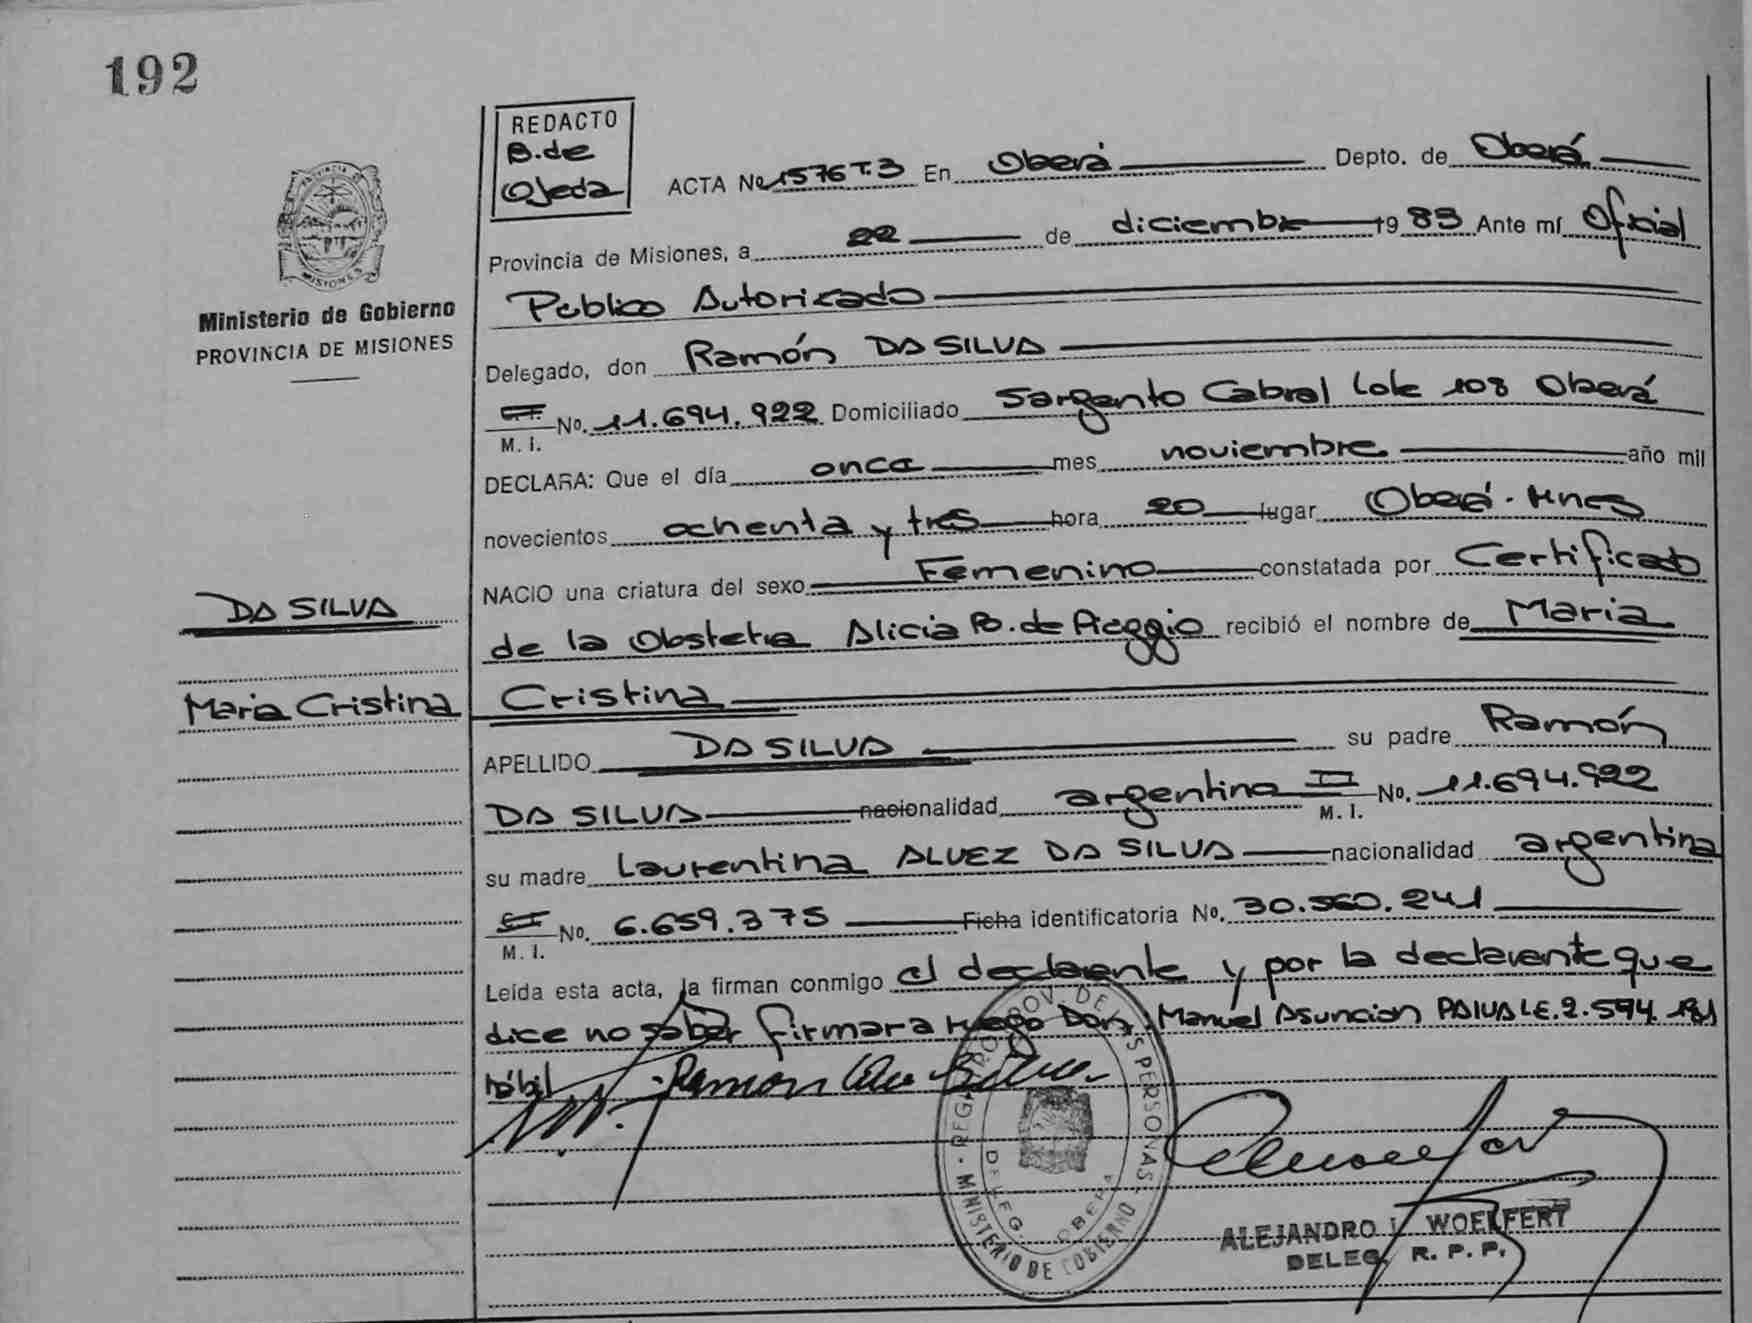 192
REDACTO
B. de
Ojeda
ACTA No 1576 T.3 En Oberá Depto. de Oberá
Provincia de Misiones, a 22 de diciembre 1983 Ante mí Oficial
Publico Autorizado
PROVINCIA DE
MISIONES
Ministerio de Gobierno
PROVINCIA DE MISIONES
Delegado, don Ramón DA SILVA
M. I. No. 11.694.922 Domiciliado Sargento Cabral Lote 108 Oberá
DECLARA: Que el día once mes noviembre año mil
novecientos ochenta y tres hora 20 lugar Oberá - Mnes
NACIO una criatura del sexo Femenino constatada por Certificado
DA SILVA
de la Obstetra Alicia B. de recibió el nombre de Maria
Maria Cristina
Cristina
APELLIDO DA SILVA su padre Ramón
DA SILVA nacionalidad argentina M. I. No. 11.694.922
su madre Laurentina ALVEZ DA SILVA nacionalidad argentina
M. I. No. 6.659.375 Ficha identificatoria No. 30.560.241
Leída esta acta, la firman conmigo el declarante y por la declarante que
dice no saber firmar a ruego Don Manuel Asuncion PAIVA LE. 2.594.191
hábil
Ramon Da Silva
REGISTRO PROV. DE LAS PERSONAS
MINISTERIO DE GOBIERNO
DELEG. OBERA
ALEJANDRO L. WOELFERT
DELEG. R. P. P.